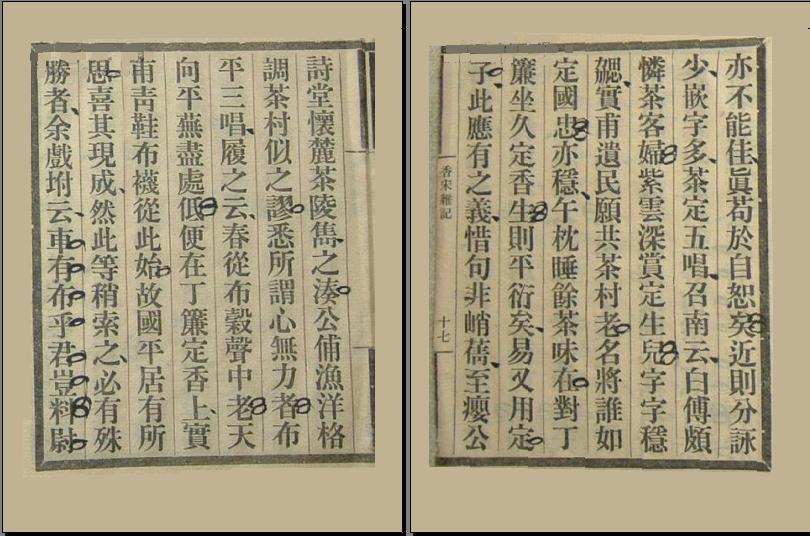 亦不能佳眞苟於自恕矣近則分詠
少嵌字多茶定五唱召南云白傅頗
憐茶客婦紫雲深賞定生兒字字穩
實甫遺民願共茶村老名將誰如
定國忠亦穩午枕睡餘茶味在對丁
簾坐久定香生則平衍矣易又用定
子此應有之義惜句非峭蒨至癭公
香宋雜記
十七
詩堂懷麓茶陵雋之湊公俌漁洋格
調茶村似之謬悉所謂心無力者布
平三唱履之云春從布穀聲中老天
向平蕪盡處低便在丁簾定香上實
甫靑鞋布襪從此始故國平居有所
思喜其現成然此等稍索之必有殊
勝者余戲坿云車有布乎君豈料尉